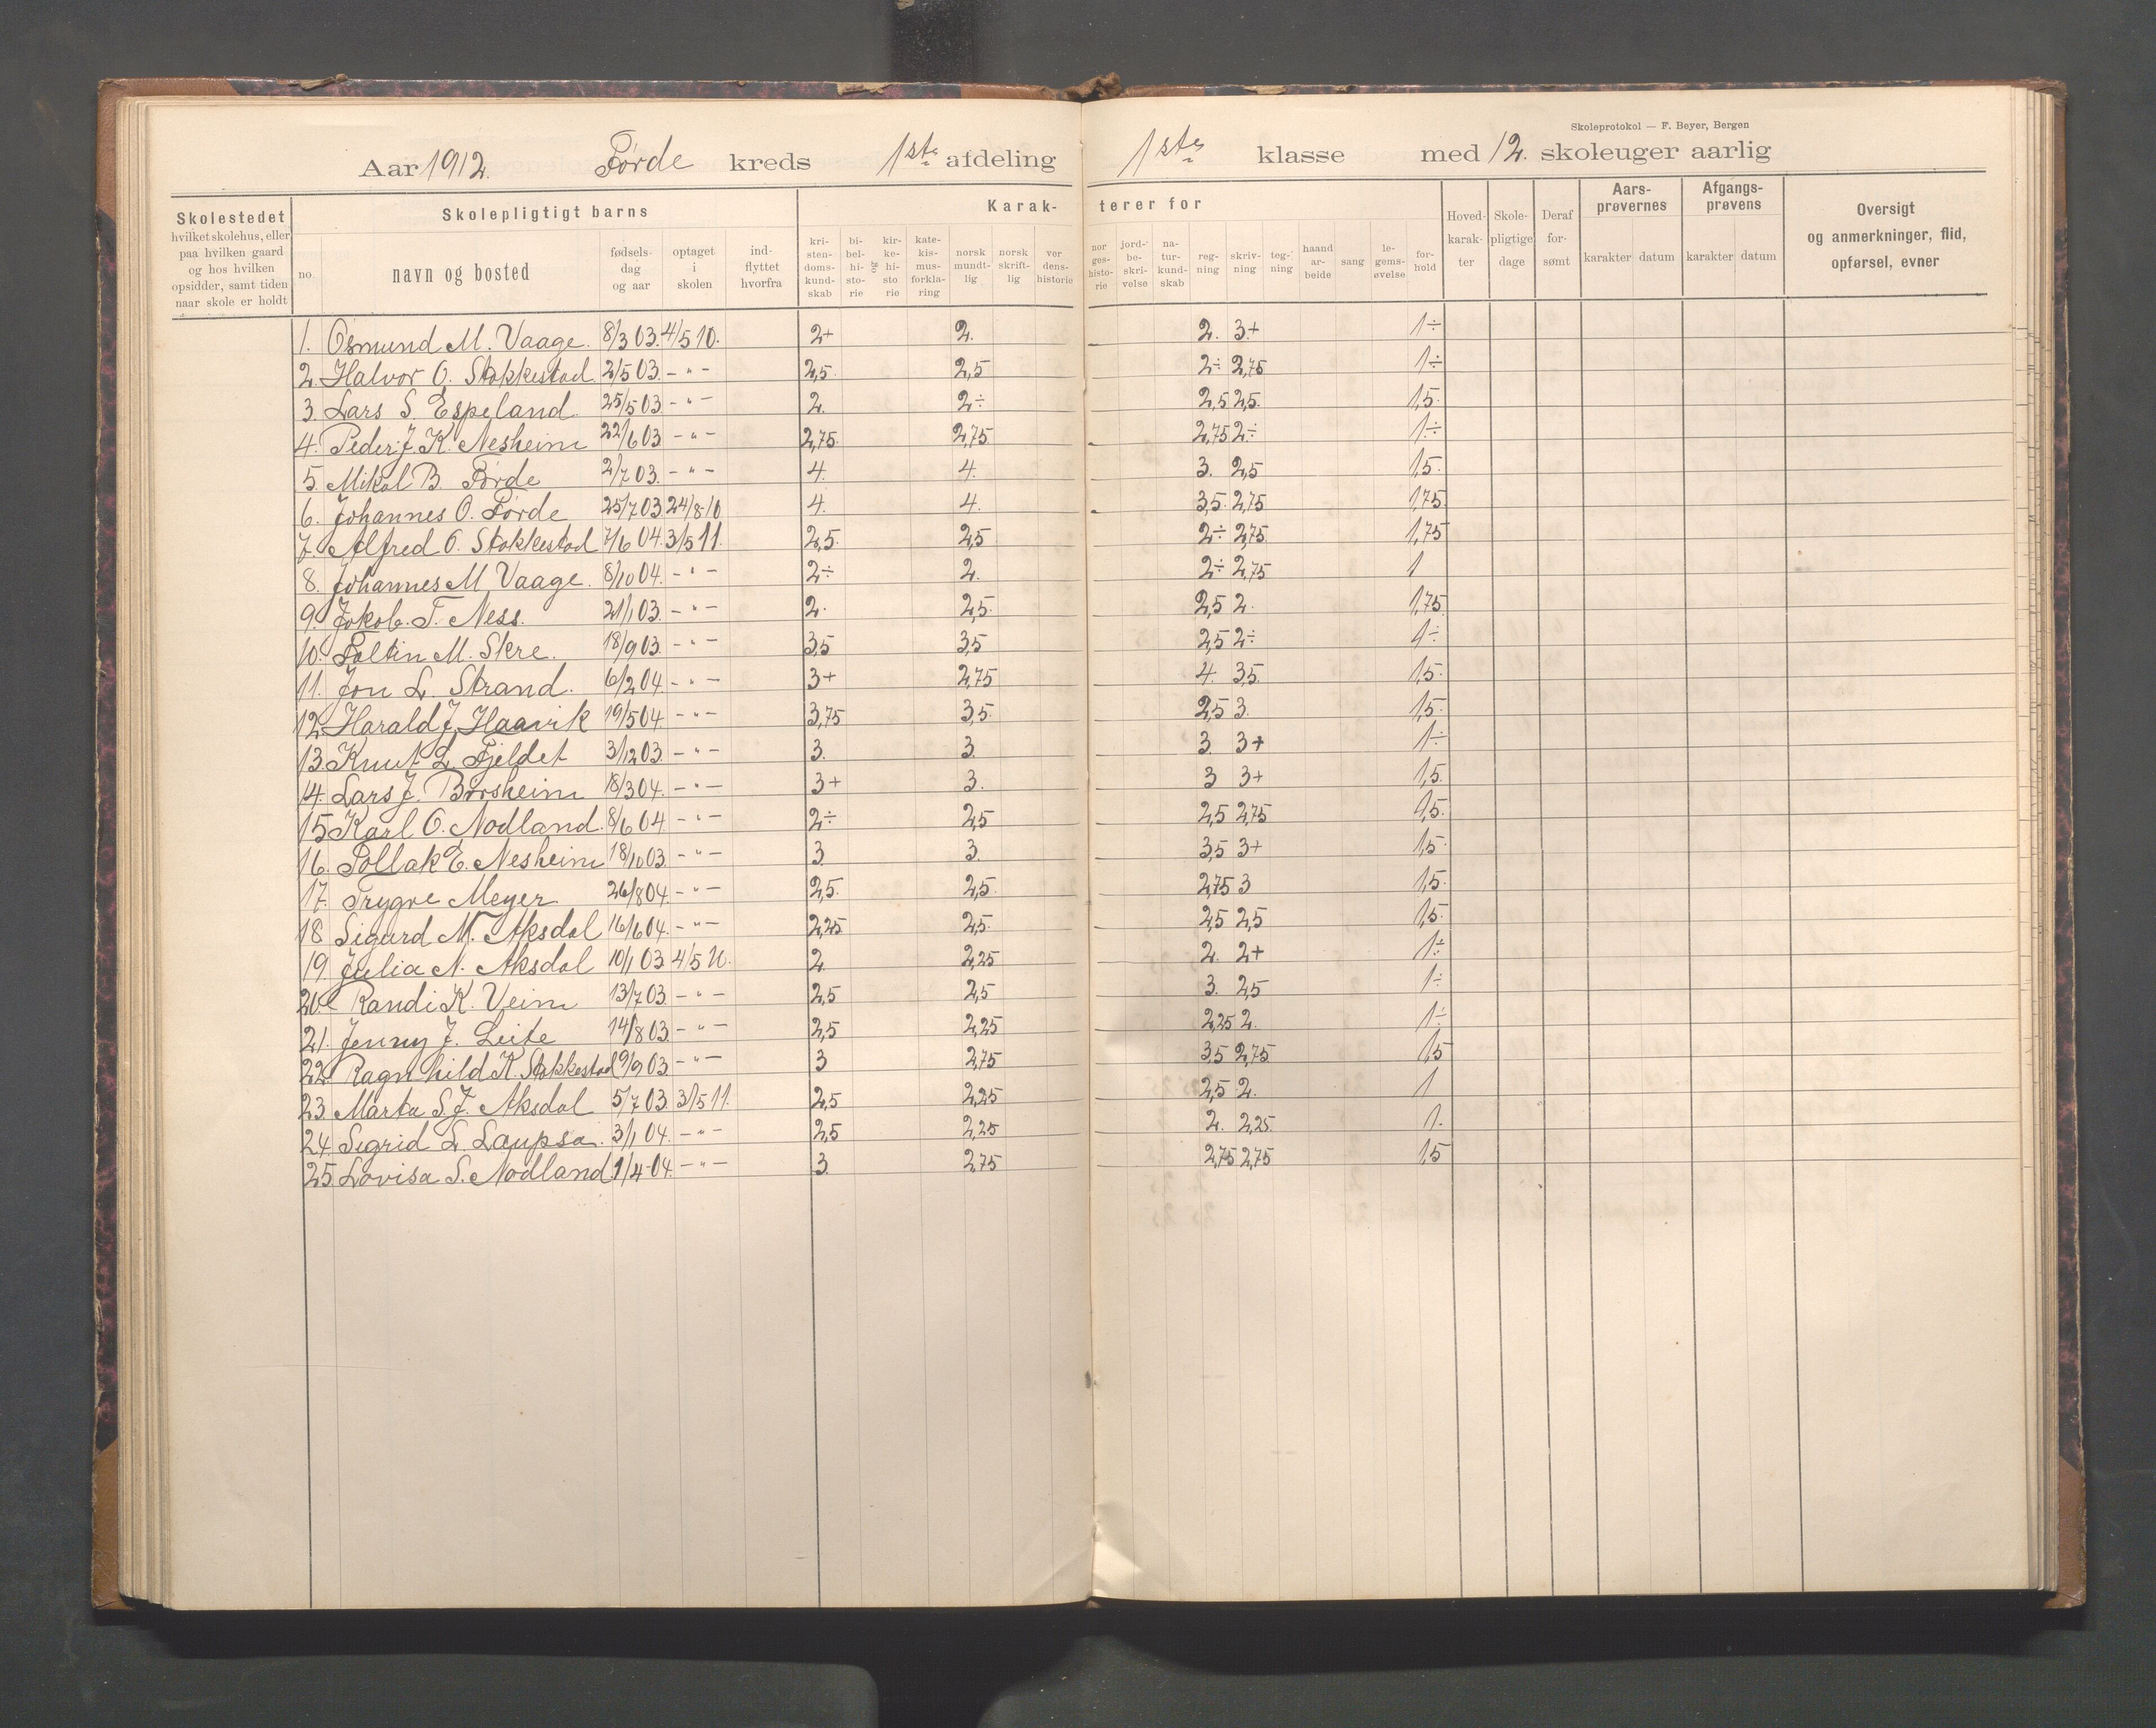 Skoleprotokol — F. Beyer, Bergen
Aar 1912. Førde kreds 1ste afdeling 1ste klasse med 12. skoleuger aarlig
Skolestedet hvilket skolehus, eller paa hvilken gaard og hos hvilken opsidder, samt tiden naar skole er holdt
Skolepligtigt barns
no. navn og bosted fødselsdag og aar optaget i skolen indflyttet hvorfra
Karakterer for
kristendomskundskab bibelhistorie kirkehistorie katekismusforklaring norsk mundtlig norsk skriftlig verdenshistorie norgeshistorie jordbeskrivelse naturkundskab regning skrivning tegning haandarbeide sang legemsøvelse forhold
Hovedkarakter Skolepligtige dage Deraf forsømt
Aarsprøvernes karakter datum
Afgangsprøvens karakter datum
Oversigt og anmerkninger, flid, opførsel, evner
1. Osmund M. Vaage. 8/3 03. 4/5 10. 2+ 2. 2. 3+ 1÷
2. Halvor O. Stakkestad. 2/5 03. -"- 2,5. 2,5 2÷ 2,75 1÷
3. Lars S. Espeland. 25/5 03 -"- 2. 2÷ 2,5 2,5. 1,5.
4. Peder J. K. Nesheim 22/6 03 -"- 2,75. 2,75 2,75 2÷ 1÷
5. Mikal B. Førde 2/7 03. -"- 4. 4. 3. 2,5 1,5.
6. Johannes O. Førde 25/7 03 24/8 10 4. 4. 3,5. 2,75 1,75
7. Alfred O. Stakkestad 7/6 04. 3/5 11. 2,5. 2,5 2÷ 2,75 1,75
8. Johannes M Vaage. 8/10 04. -"- 2÷ 2. 2÷ 2,75 1
9. Jakob. T. Ness. 21/1 03. -"- 2. 2,5. 2,5 2. 1,75
10. Foltin M. Skre. 18/9 03. -"- 3,5 3,5 2,5 2÷ 1÷
11. Jon L. Strand. 6/2 04. -"- 3+ 2,75 4. 3,5. 1,5.
12. Harald J. Haavik 19/5 04. -"- 3,75 3,5. 2,5 3. 1,5.
13. Knut L. Fjeldet 3/12 03 -"- 3. 3. 3. 3+ 1÷
14. Lars J. Børsheim 18/3 04. -"- 3+ 3. 3 3+ 1,5.
15 Karl O. Nodland. 8/6 04 -"- 2÷ 2,5 2,5 2,75 1,5.
16. Tollak E. Nesheim 18/10 03 -"- 3 3. 3,5 3+ 1,5
17. Trygve Meyer. 26/8 04. -"- 2,5. 2,5. 2,75 3 1,5.
18 Sigurd M. Aksdal 16/6 04. -"- 2,25 2,5. 2,5 2,5 1,5.
19. Julia N. Aksdal 10/1 03 4/5 10. 2 2,25 2. 2+ 1÷
20. Randi K. Veim 13/7 03 -"- 2,5 2,5 3. 2,5 1÷
21. Jenny J. Leite 14/8 03. -"- 2,5 2,25 2,25 2. 1÷
22. Ragnhild K. Stakkestad 9/9 03 -"- 3 2,75 3,5 2,75 1,5
23. Marta S. J. Aksdal 5/7 03. 3/5 11. 2,5 2,25 2,5 2. 1
24. Sigrid L. Laupsa. 3/1 04. -"- 2,5 2,25 2. 2,25. 1.
25. Lovisa S. Nodland 1/4 04. -"- 3. 2,75 2,75 2,75 1,5